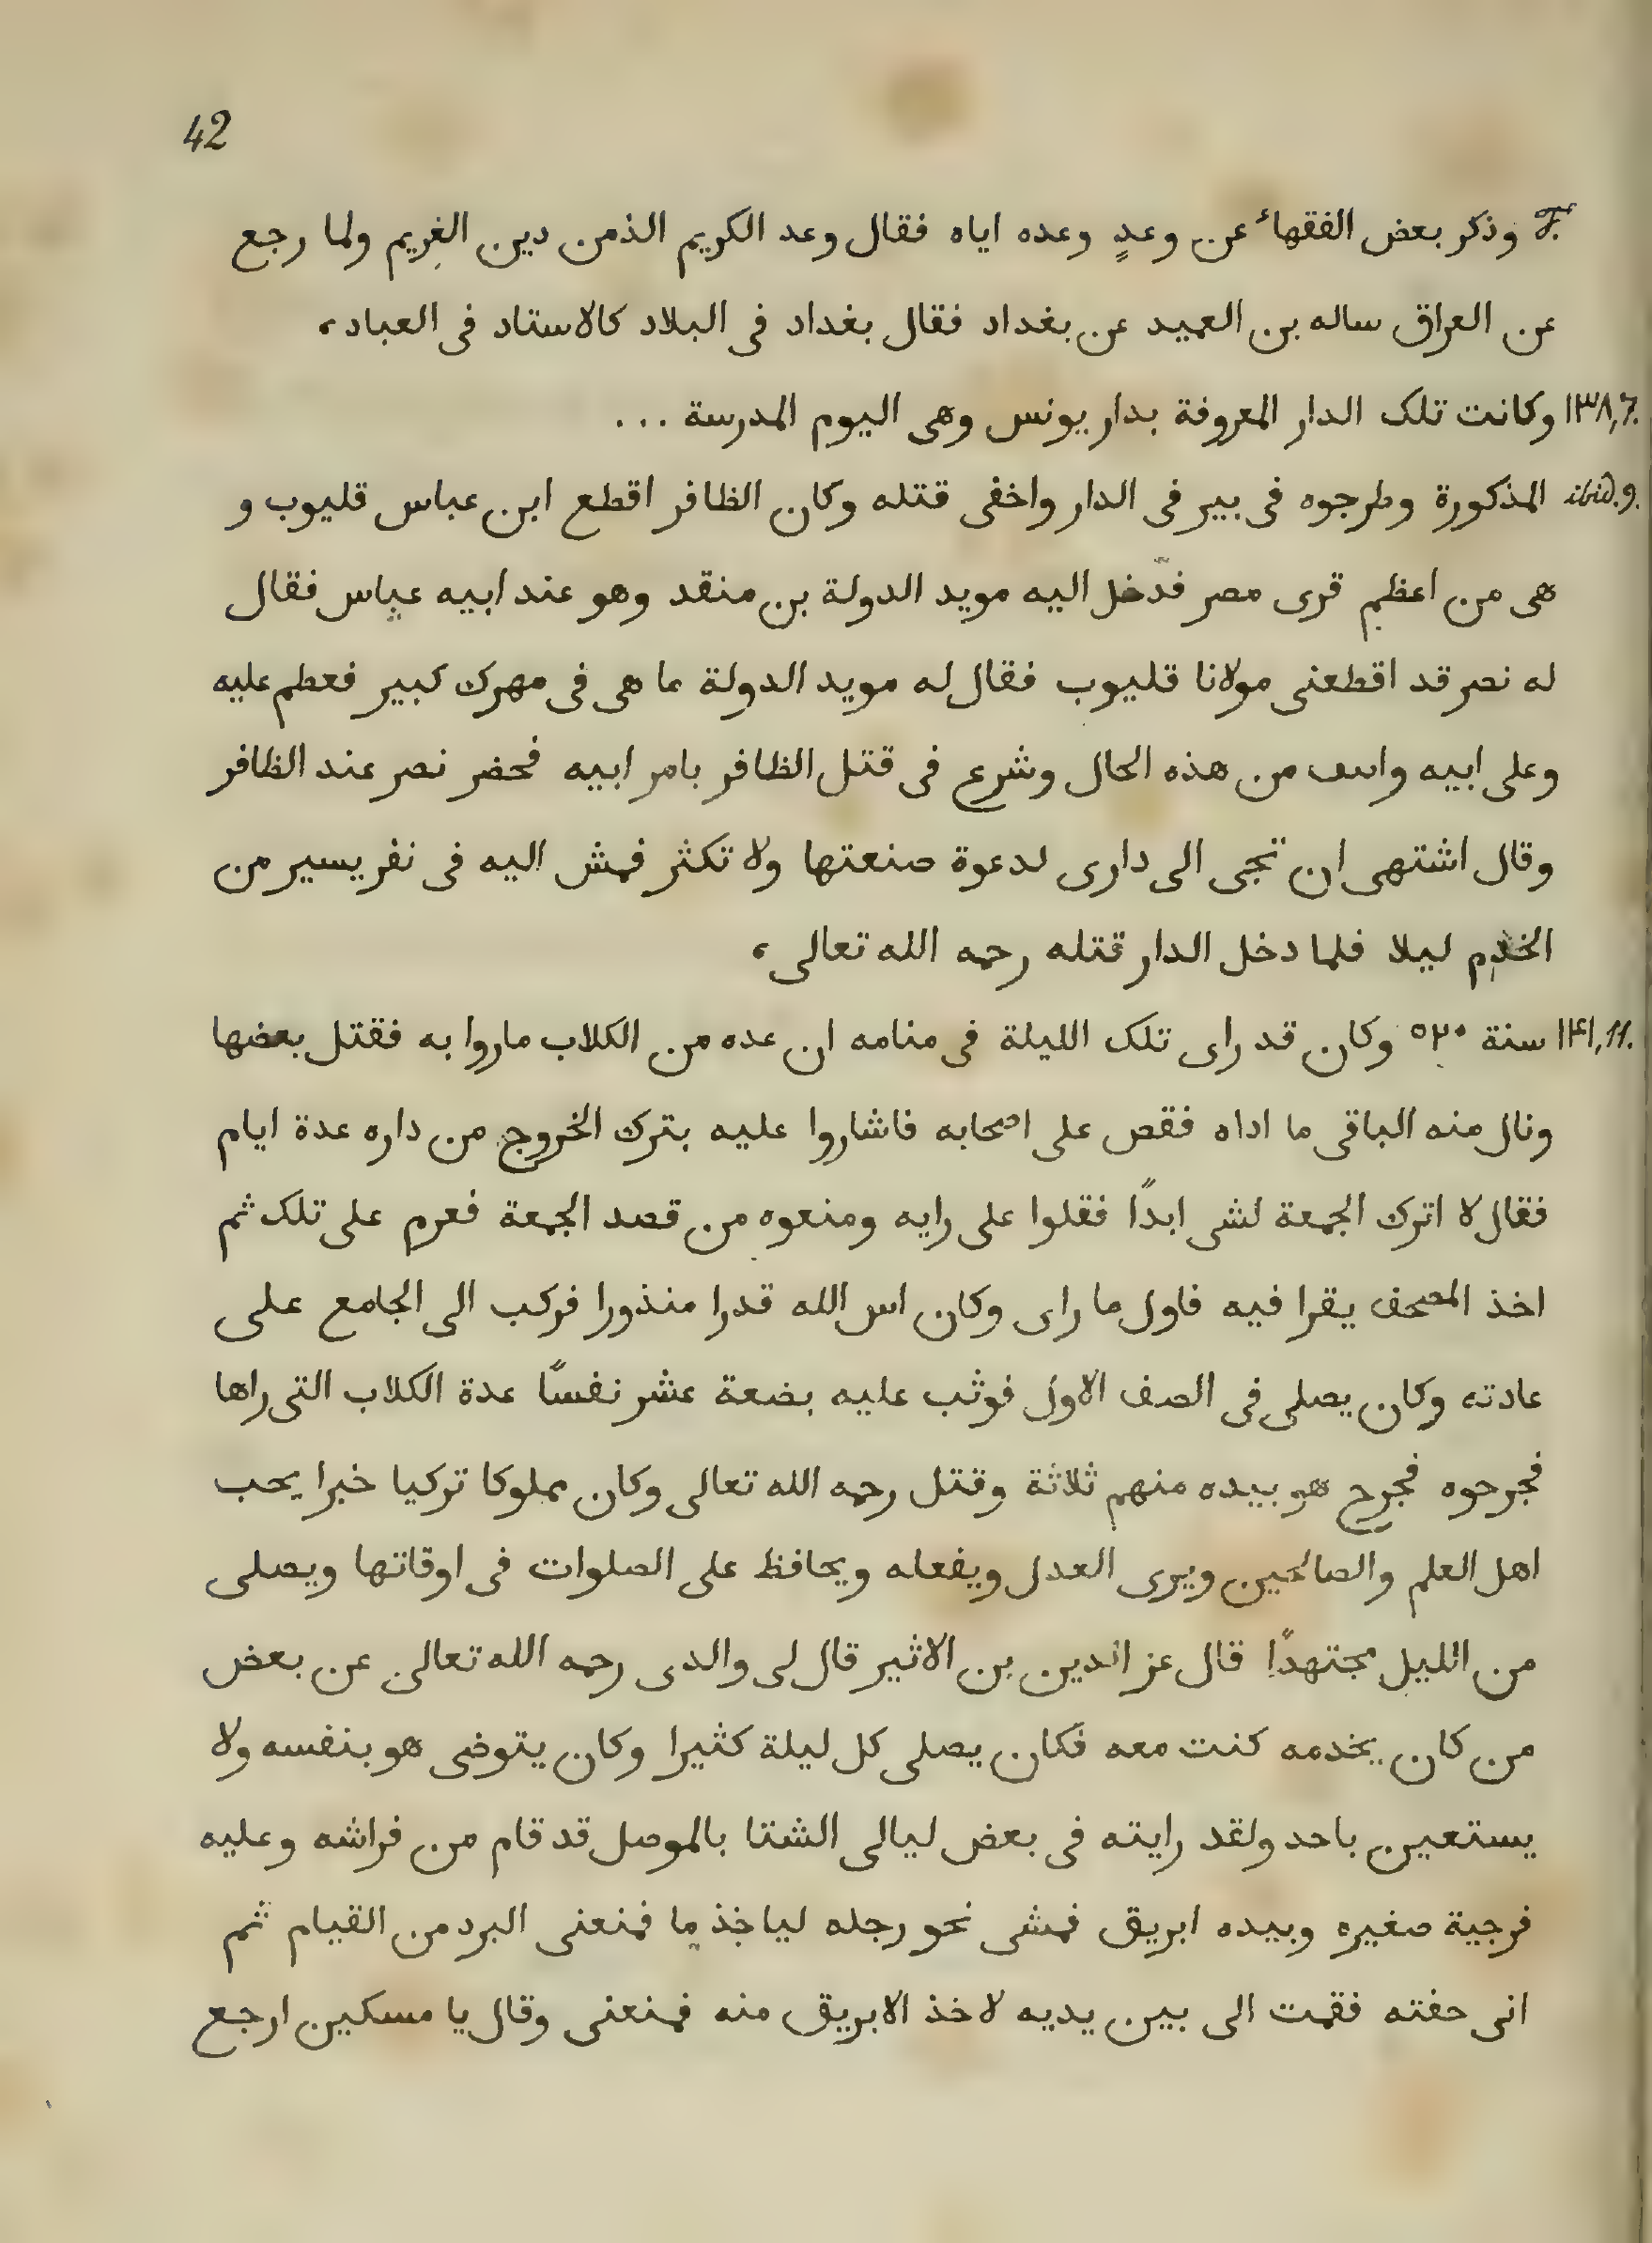 42
وذكر بعض الفقهاء عن وعدٍ وعده اياه فقال وعد الكريم الذمن دين الغريم ولما رجع
عن العراق ساله بن العميد عن بغداد فقال بغداد فى البلاد كالاستاد فى العباد،
١٣٨,7. وكانت تلك الدار المعروفة بدار يونس وهى اليوم المدرسة ...
ibid.9. المذكورة وطرجوه فى بير فى الدار واخفى قتله وكان الظافر اقطع ابن عباس قليوب و
هى من اعظم قرى مصر فدخل اليه مويد الدولة بن منقد وهو عند ابيه عباس فقال
له نصر قد اقطعنى مولانا قليوب فقال له مويد الدولة ما هى فى مهرك كبير فعطم عليه
وعلى ابيه من هذه الحال وشرع فى قتل الظافر بامر ابيه فحضر نصر عند الظافر
وقال اشتهى ان تجى الى دارى لدعوة صنعتها ولا تكثر فمش اليه فى نفر يسير من
الخدم ليلا فلما دخل الدار قتله رحمه الله تعالى،
١٤١,11. سنة ٥٢٠ وكان قد راى تلك الليلة فى منامه ان عده من الكلاب ماروا به فقتل بعضها
ونال منه الباقى ما اداه فقص على اصحابه فاشاروا عليه بترك الخروج من داره عدة ايام
فقال لا اترك الجمعة لشى ابدًا فقلوا على رايه ومنعوه من قصد الجمعة فعرم على تلك ثم
اخذ المصحف يقرا فيه فاول ما راى وكان امر الله قدرا منذورا فركب الى الجامع على
عادته وكان يصلى فى الصف الاول فوثب عليه بضعة عشر نفسًا عدة الكلاب التى راها
فجرحوه فجرح هو بيده منهم ثلاثة وقتل رحمه الله تعالى وكان مملوكا تركيا خبرا يحب
اهل العلم والصالحين ويرى العدل ويفعله ويحافظ على الصلوات فى اوقاتها ويصلى
من الليل مجتهدًا قال عز الدين بن الاثير قال لى والدى رحمه الله تعالى عن بعض
من كان يخدمه كنت معه فكان يصلى كل ليلة كثيرا وكان يتوضى هو بنفسه ولا
يستعين باحد ولقد رايته فى بعض ليالى الشتا بالموصل قد قام من فراشه وعليه
فرجية صغيره وبيده ابريق فمشى نحو رجله لياخذ ما فمنعنى البرد من القيام ثم
انى حفته فقمت الى بين يديه لاخذ الابريق منه فمنعنى وقال يا مسكين ارجع